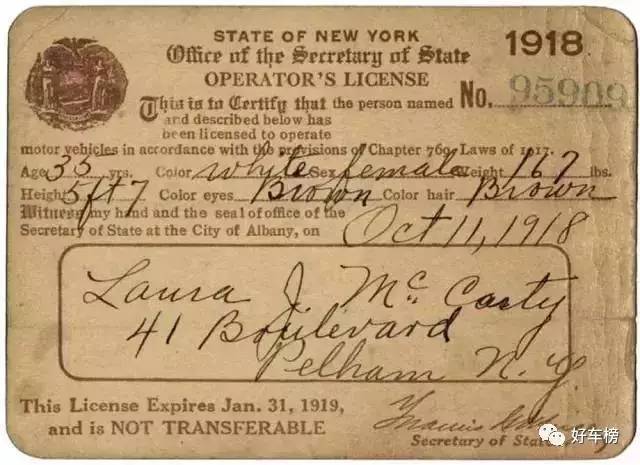 STATE OF NEW YORK
1918
Office of the Secretary of State
OPERATOR'S LICENSE
This is to Certify that the person named No. 95909
and described below has
been licensed to operate
motor vehicles in accordance with the provisions of Chapter 769, Laws of 1917.
Age 35 yrs. Color white Sex female Weight 167 lbs.
Height 5ft 7 Color eyes Brown Color hair Brown
Witness my hand and the seal of office of the
Secretary of State at the City of Albany, on Oct 11, 1918
Laura J. McCarty
41 Boulevard
Pelham N.Y.
This License Expires Jan. 31, 1919,
and is NOT TRANSFERABLE
Francis
Secretary of State
好车榜